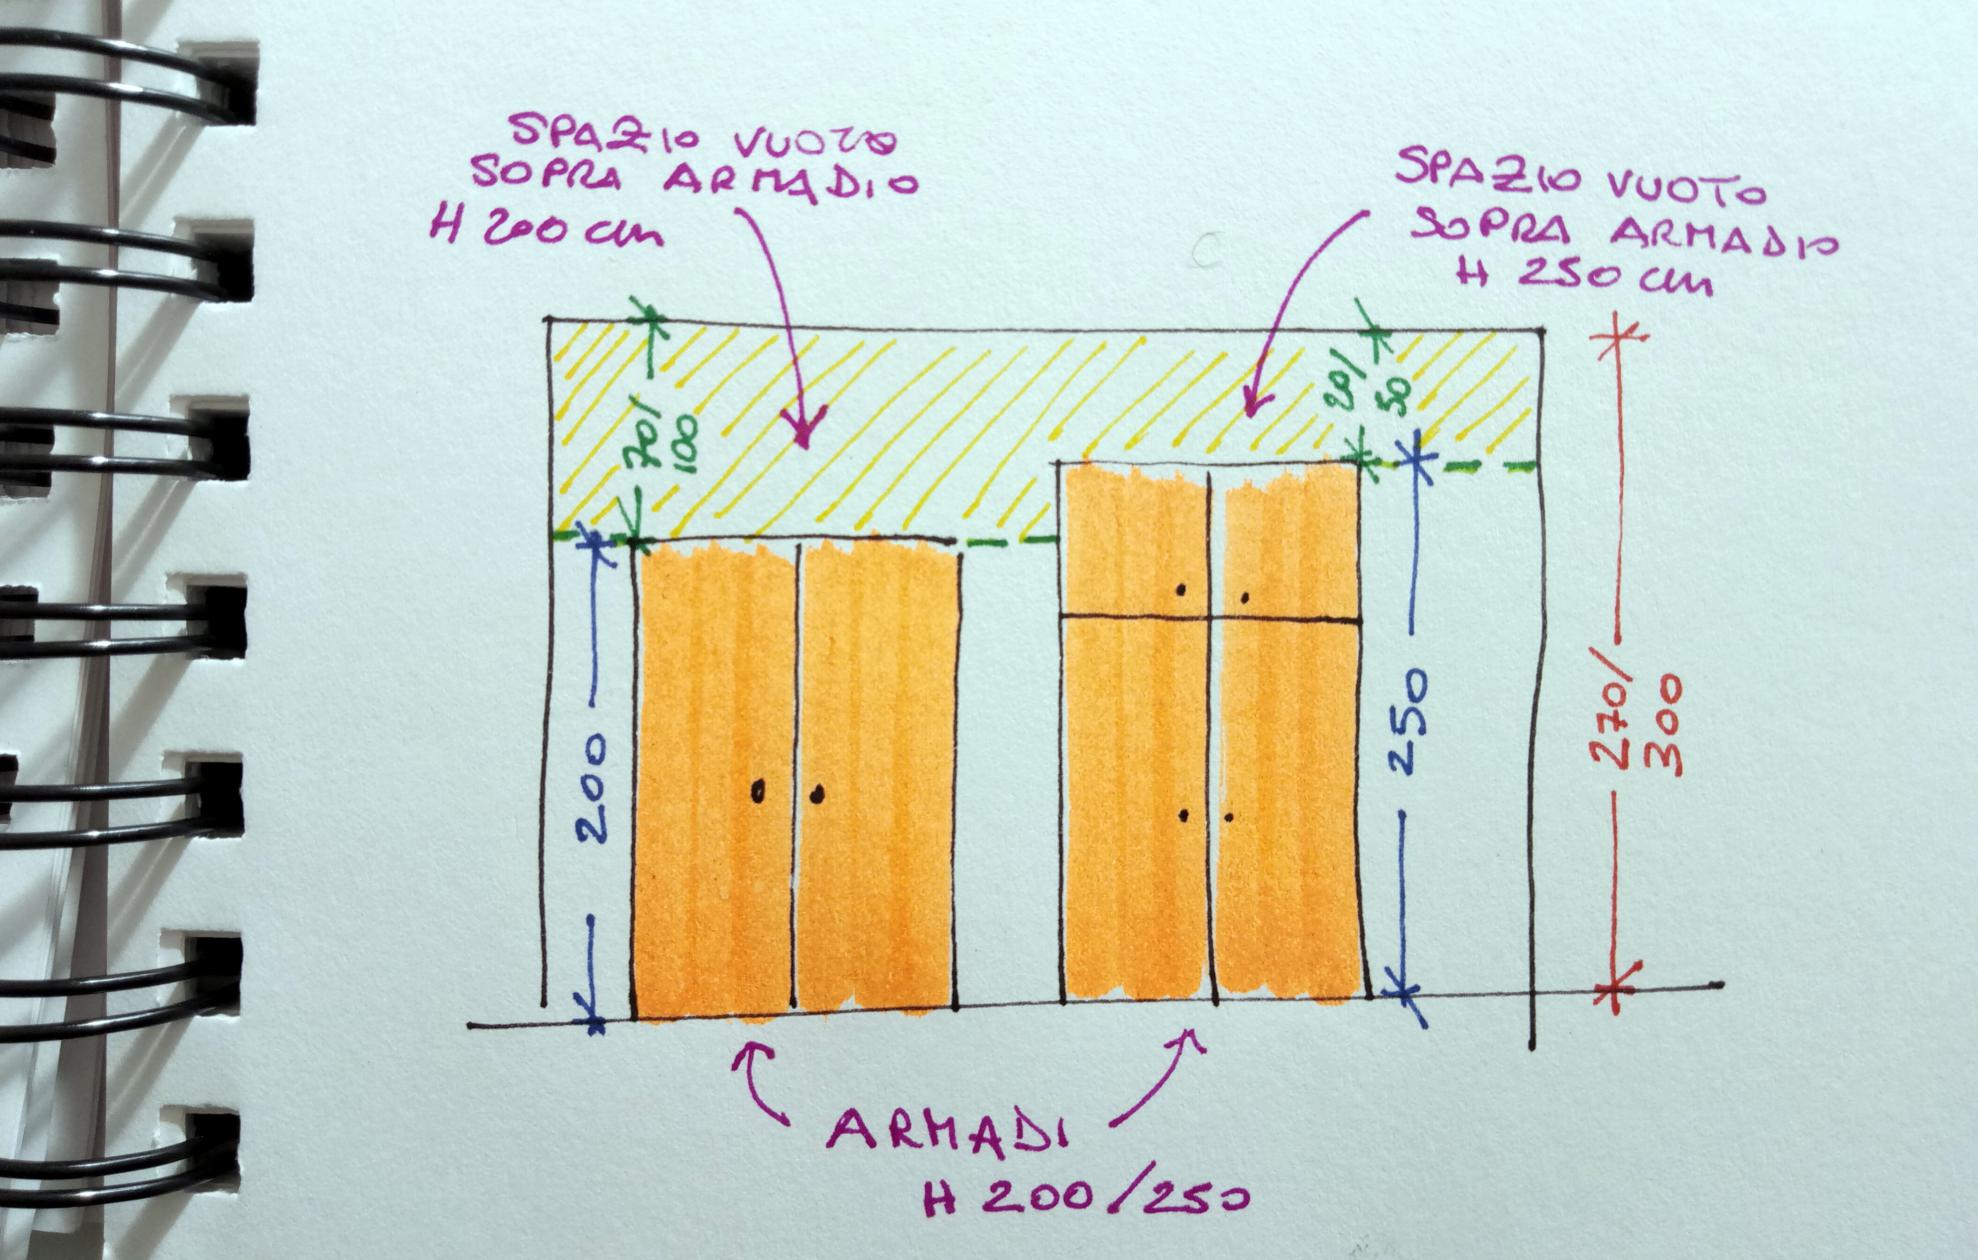 SPAZIO VUOTO
SOPRA ARMADIO
H 200 cm
SPAZIO VUOTO
SOPRA ARMADIO
H 250 cm
70/
100
20/
50
200
250
270/
300
ARMADI
H 200/250